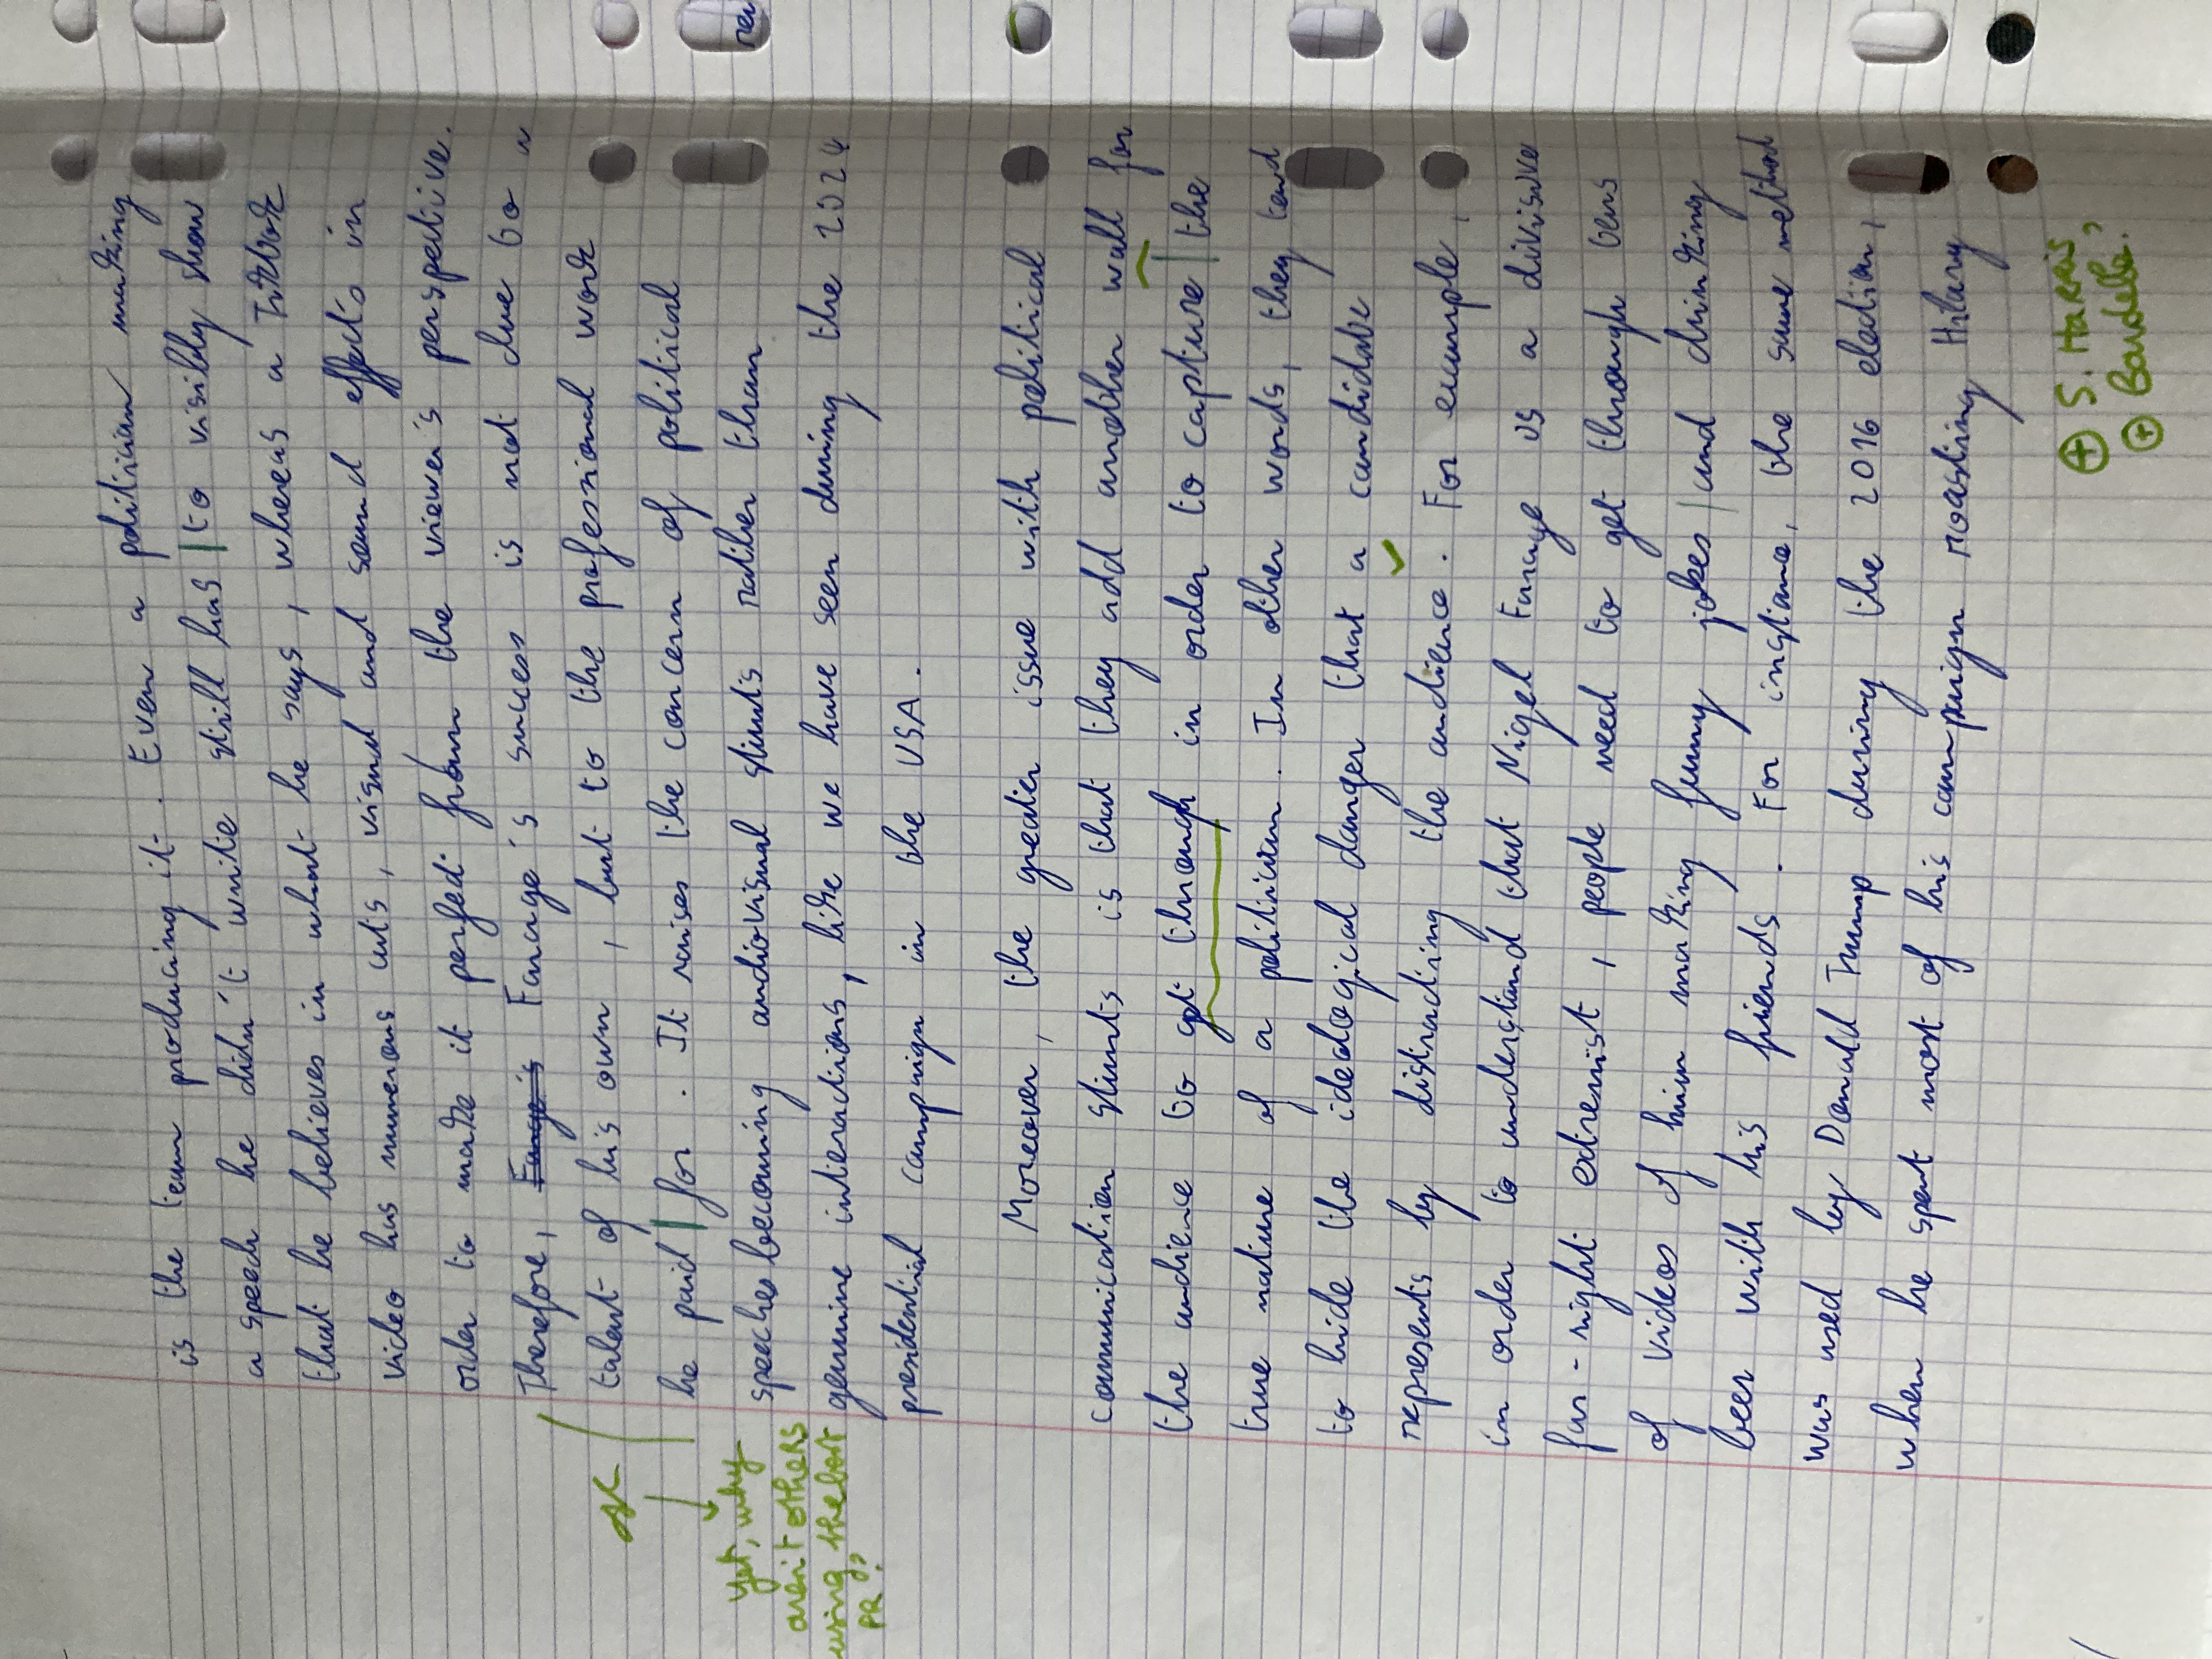 is the team producing it. Even a politician making
a speech he didn't write still has to visibly show
that he believes in what he says, whereas a TikTok
video has numerous cuts, visual and sound effects in
order to make it perfect from the viewer's perspective.
Therefore, Farage's Farage's success is not due to a
talent of his own, but to the professional work
he paid for. It raises the concern of political
speeches becoming audiovisual stunts rather than
genuine interactions, like we have seen during the 2024
presidential campaign in the USA.
Yet, why
aren't others
using the best
PR?
Moreover, the greater issue with political
communication stunts is that they add another wall for
the audience to get through in order to capture the
true nature of a politician. In other words, they tend
to hide the ideological danger that a candidate
represents by distracting the audience. For example,
in order to understand that Nigel Farage is a divisive
far-right extremist, people need to get through tens
of videos of him making funny jokes and drinking
beer with his friends. For instance, the same method
was used by Donald Trump during the 2016 election,
when he spent most of his campaign roasting Hilary
+ S. HARRIS
+ Bardella?